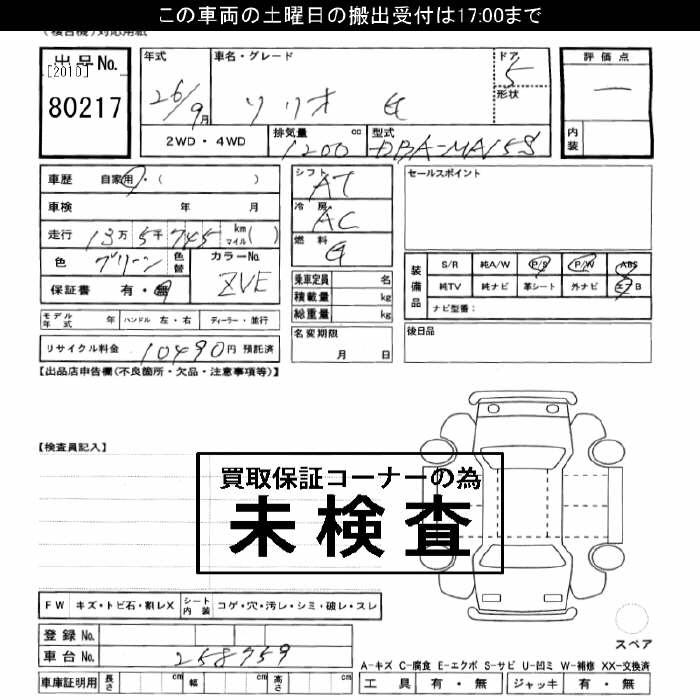 この車両の土曜日の搬出受付は17:00まで
出品No.
[2010]
80217
年式
26/9月
車名・グレード
ソリオ G
ドア
5
形状
評価点
—
内装
2WD・4WD
排気量 cc
1200
型式
DBA-MA15S
車歴 自家用・( )
車検 年 月
走行 13万5千745 km マイル( )
色 グリーン 色替
カラーNo.
ZVE
保証書 有・無
シフト
AT
冷房
AC
燃料
G
乗車定員 名
積載量 kg
総重量 kg
セールスポイント
装備品
S/R 純A/W P/S P/W ABS
純TV 純ナビ 革シート 外ナビ エアB
ナビ型番:
モデル年式 年 ハンドル 左・右 ディーラー・並行
名変期限
月 日
後日品
リサイクル料金 10490円 預託済
【出品店申告欄(不良箇所・欠品・注意事項等)】
【検査員記入】
買取保証コーナーの為
未検査
FW キズ・トビ石・割レX シート内装 コゲ・穴・汚レ・シミ・破レ・スレ
登録No.
車台No. 258759
スペア
A-キズ C-腐食 E-エクボ S-サビ U-凹ミ W-補修 XX-交換済
車庫証明用 長さ cm 幅 cm 高さ cm
工具 有・無 ジャッキ 有・無